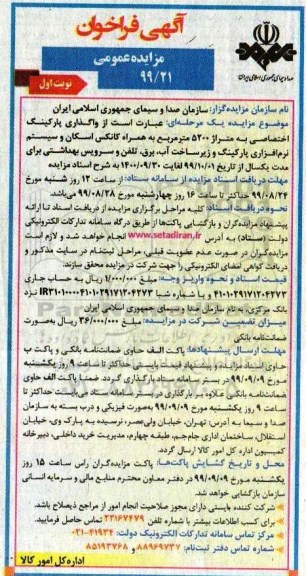 آگهی فراخوان
مزایده عمومی
۹۹/۲۱
نوبت اول
صدا و سیمای جمهوری اسلامی ایران
نام سازمان مزایده‌گزار: سازمان صدا و سیمای جمهوری اسلامی ایران
موضوع مزایده یک مرحله‌ای: عبارت است از واگذاری پارکینگ
اختصاصی به متراژ ۵۲۰۰ مترمربع به همراه کانکس اسکان و سیستم
نرم‌افزاری پارکینگ و زیرساخت آب، برق، تلفن و سرویس بهداشتی برای
مدت یکسال از تاریخ ۹۹/۱۰/۰۱ لغایت ۱۴۰۰/۰۹/۳۰ به شرح اسناد مزایده
مهلت دریافت اسناد مزایده از سامانه ستاد: از ساعت ۱۲ روز شنبه مورخ
۹۹/۰۸/۲۴ حداکثر تا ساعت ۱۶ روز چهارشنبه مورخ ۹۹/۰۸/۲۸ می‌باشد.
نحوه دریافت اسناد: کلیه مراحل برگزاری مزایده از دریافت اسناد تا ارائه
پیشنهاد مزایده‌گران و بازگشایی پاکت‌ها از طریق درگاه سامانه تدارکات الکترونیکی
دولت (ستاد) به آدرس www.setadiran.ir انجام خواهد شد و لازم است
مزایده‌گران در صورت عدم عضویت قبلی، مراحل ثبت‌نام در سایت مذکور و
دریافت گواهی امضای الکترونیکی را جهت شرکت در مزایده محقق سازند.
قیمت اسناد و نحوه واریز وجه: مبلغ ۱/۰۰۰/۰۰۰ ریال به حساب جاری
۴۱۰۱۰۲۹۱۷۱۲۰۴۲۷۳ و یا شماره شبا نزد
بانک مرکزی، به نام سازمان صدا و سیمای جمهوری اسلامی ایران
میزان تضمین شرکت در مزایده: مبلغ ۳۶/۰۰۰/۰۰۰ ریال به‌صورت
ضمانت‌نامه بانکی
مهلت ارسال پیشنهادها: پاکت الف حاوی ضمانت‌نامه بانکی و پاکت ب
حاوی اسناد مزایده و پیشنهاد قیمت بایستی حداکثر تا ساعت ۹ روز یکشنبه
مورخ ۹۹/۰۹/۰۹ در بستر سامانه ستاد بارگذاری گردد. ضمنا پاکت الف حاوی
ضمانت‌نامه بانکی علاوه بر بارگذاری در بستر سامانه ستاد می‌بایست حداکثر تا
ساعت ۹ روز یکشنبه مورخ ۹۹/۰۹/۰۹ به‌صورت فیزیکی و درب بسته به سازمان
صدا و سیما به آدرس: تهران، خیابان ولی‌عصر، نرسیده به پارک وی، خیابان
استقلال، ساختمان اداری جام‌جم، طبقه چهارم، مدیریت خرید داخلی، دبیرخانه
کمیسیون اداره کل امور کالا ارسال گردد.
محل و تاریخ گشایش پاکت‌ها: پاکت مزایده‌گران راس ساعت ۱۵ روز
یکشنبه مورخ ۹۹/۰۹/۰۹ در دفتر معاون محترم منابع مالی و سرمایه انسانی
سازمان بازگشایی خواهد شد.
شرکت کننده بایستی دارای مجوز صلاحیت انجام امور از مراجع ذیصلاح باشد.
برای کسب اطلاعات بیشتر با شماره تلفن ۲۲۱۶۷۴۷۹ تماس حاصل فرمایید.
مرکز تماس سامانه تدارکات الکترونیکی دولت: ۴۱۹۳۴-۰۲۱
شماره تماس دفتر ثبت‌نام: ۸۸۹۶۹۷۳۷ و ۸۵۱۹۳۷۶۸
اداره کل امور کالا